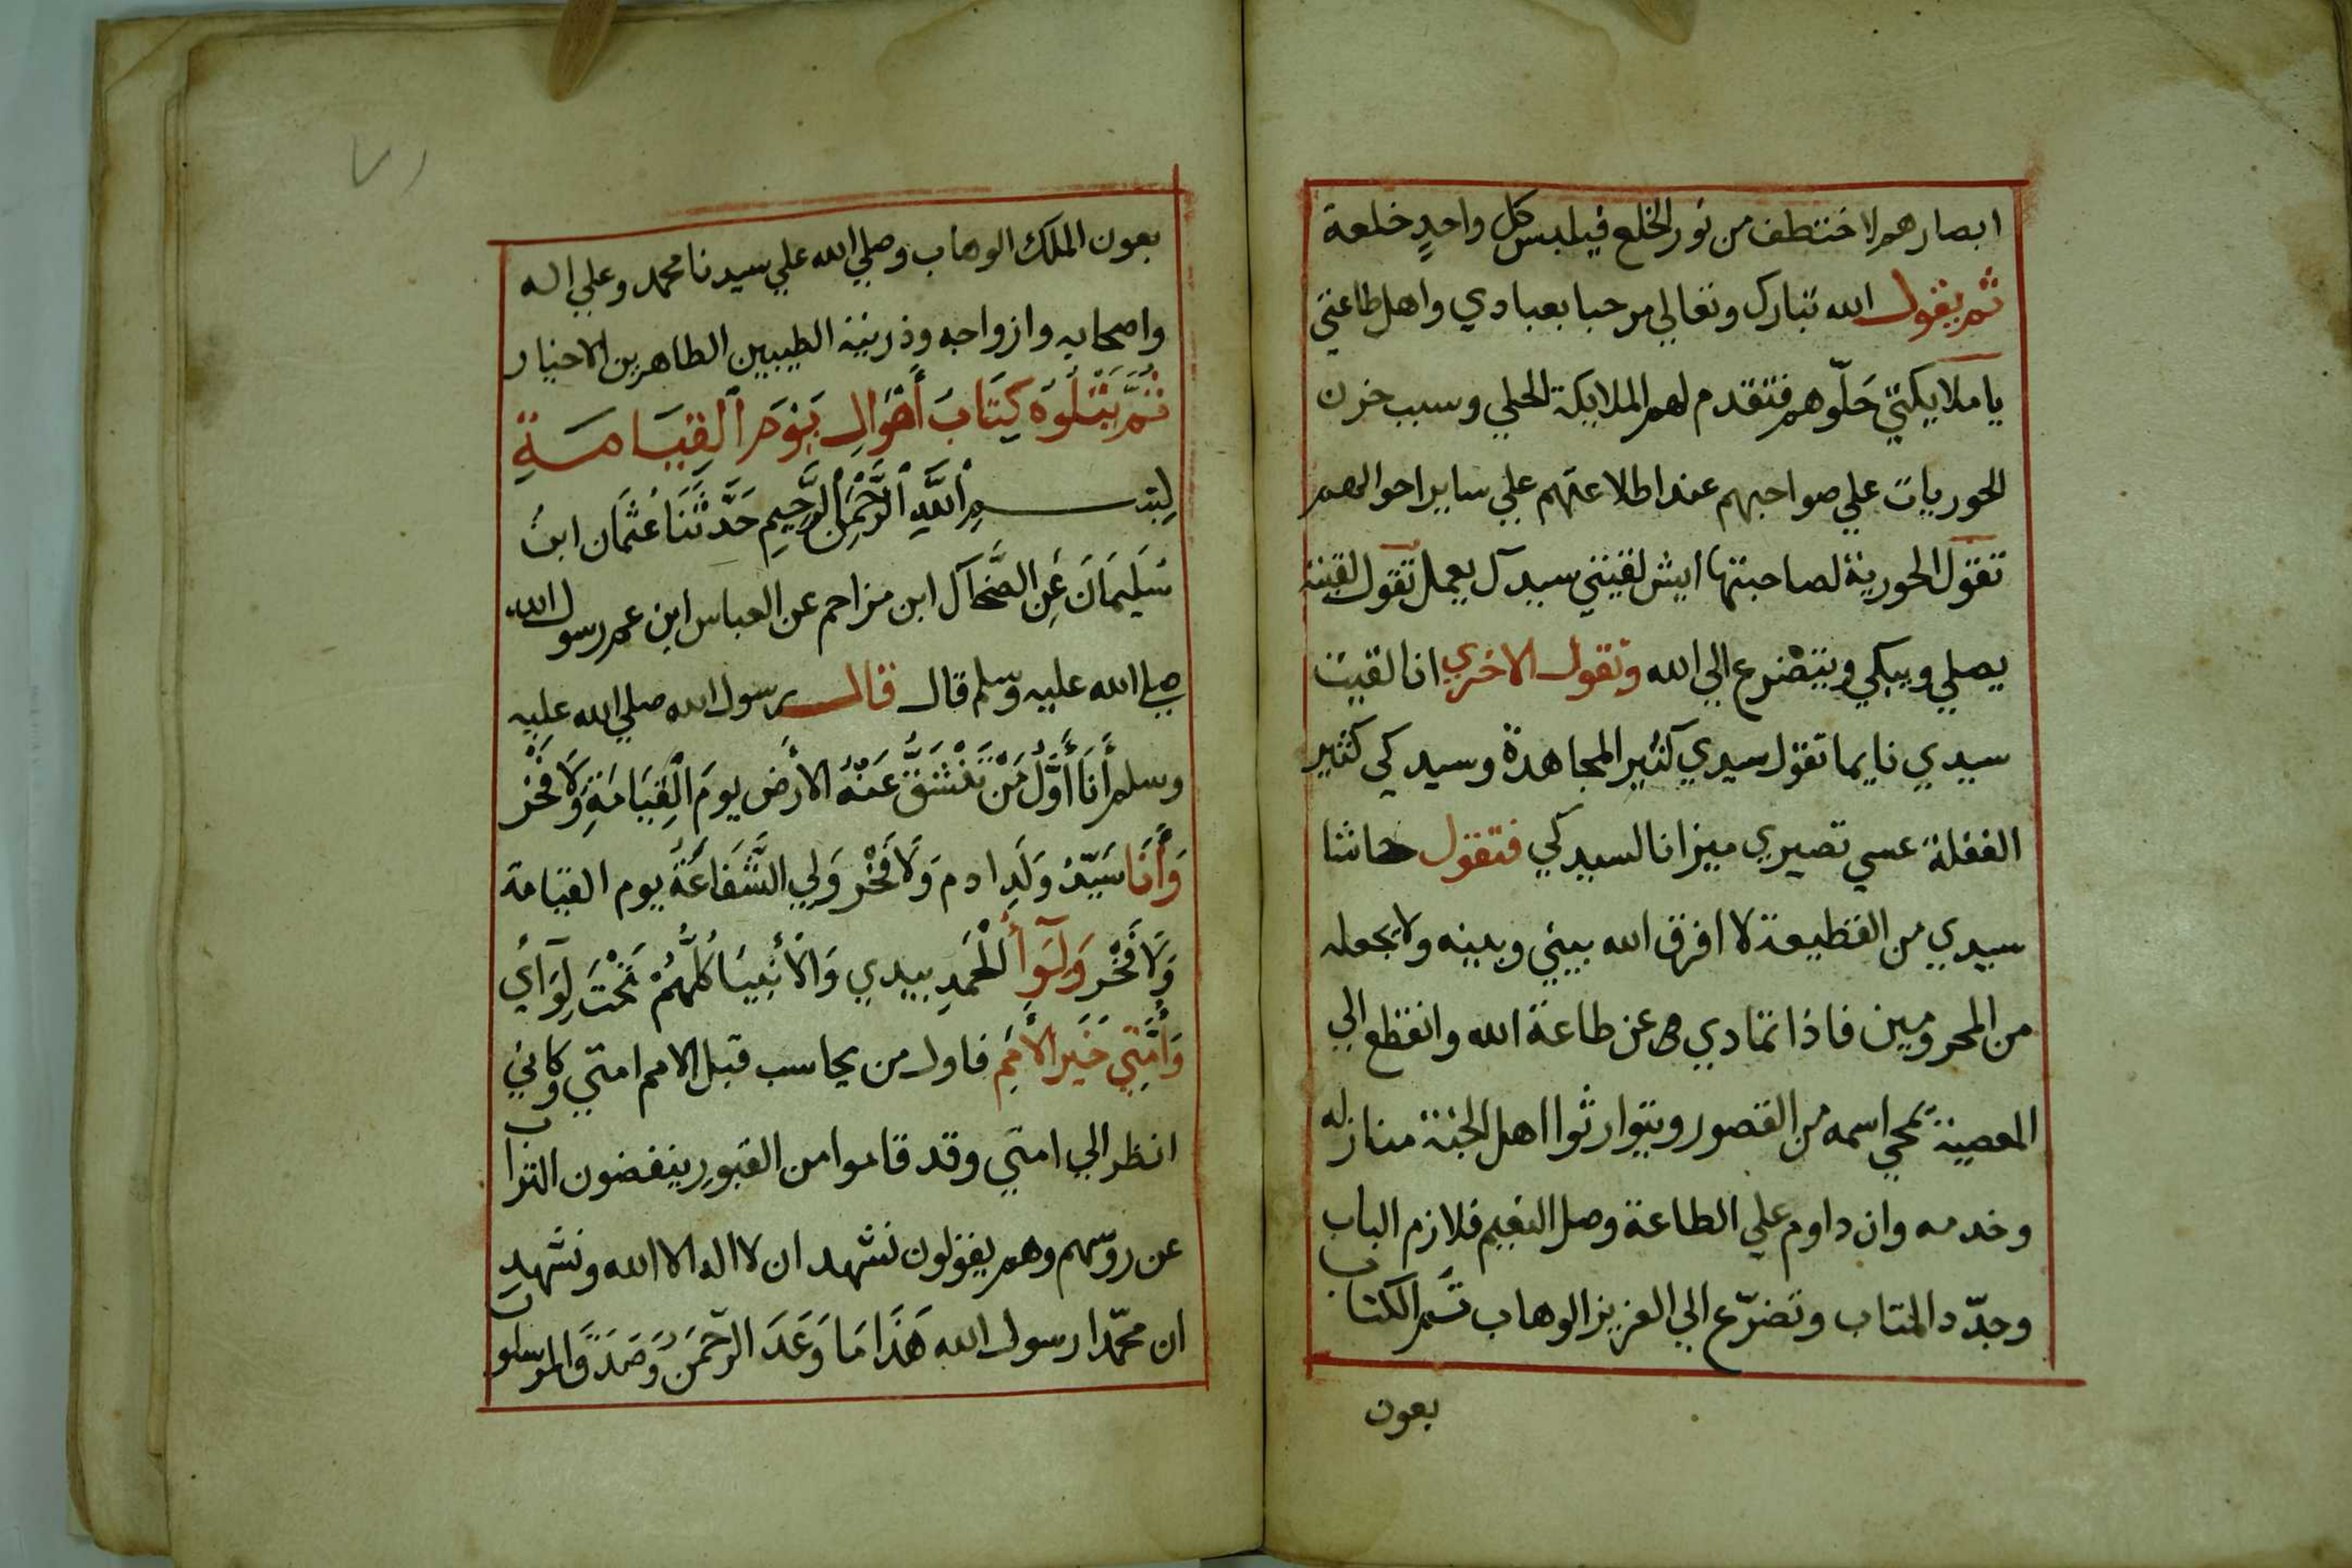 ابصارهم لاختطف من نور الخلع فيلبس كل واحدٍ خلعة
ثم يقول الله تبارك وتعالي مرحبا بعبادي واهل طاعتي
يا ملايكتي حَلّوهم فتقدم لهم الملايكة الحلي وسبب حزن
الحوريات علي صواحبهم عند اطلاعهم علي ساير احوالهم
تقول الحورية لصاحبتها ايش لقيتي سيدك يعمل تقول لقيته
يصلي ويبكي ويتضرع الي الله وتقول الاخري انا لقيت
سيدي نايما تقول سيدي كثير المجاهدة وسيدكي كثير
الغفلة عسي تصيري ميزانا لسيدكي فتقول حاشا
سيدي من القطيعة لا افرق الله بيني وبينه ولا يجعله
من المحرومين فاذا تمادي هو عن طاعة الله وانقطع الي
المعصية يمحي اسمه من القصور ويتوارثوا اهل الجنة منازله
وخدمه وان داوم علي الطاعة وصل النعيم فلازم الباب
وجدّد المتاب وتضرّع الي العزيز الوهاب تَم الكتاب
بعون
٧١
بعون الملك الوهاب وصلي الله علي سيدنا محمد وعلي اله
واصحابه وازواجه وذريته الطيبين الطاهرين الاخيار
ثُمَّ يَتْلُوْه كِتَابَ أَهْوَالِ يَوْمِ ٱلْقِيَامَةِ
بِسْمِ ٱللَّهِ ٱلرَّحْمَنِ ٱلرَّحِيمِ حَدَّثَنَا عُثمَان ابنُ
سُلَيمَانَ عَنِ الضَّحَاك ابن مزاحم عن العباس ابن عم رسول الله
صلي الله عليه وسلم قال قال رسول الله صلي الله عليه
وسلم أَنَا أَوَّلُ مَنْ تَنْشَقُّ عَنْهُ الأَرْض يومَ الْقِيَامَةِ وَلَا فَخْر
وَأَنَا سَيّدُ وَلَدِ ادم وَلَا فَخْر وَلِي الشَّفَاعَةُ يوم القيامة
وَلَا فَخْر وَلِوَآءُ الْحَمدِ بيدي وَالأَنْبِيَا كُلُّهُمْ تَحْتَ لِوَآئِي
وَأُمَّتِي خَيرَ الأُمَمِ فاول من يحاسب قبل الامم امتي وكاني
انظر الي امتي وقد قاموا من القبورِ ينفضون التراب
عن روسهم وهم يقولون نشهد ان لا اله الا الله ونشهد
ان محمّدا رسول الله هَذَا مَا وَعَدَ الرّحمَنُ وَصَدَقَ المرسلون